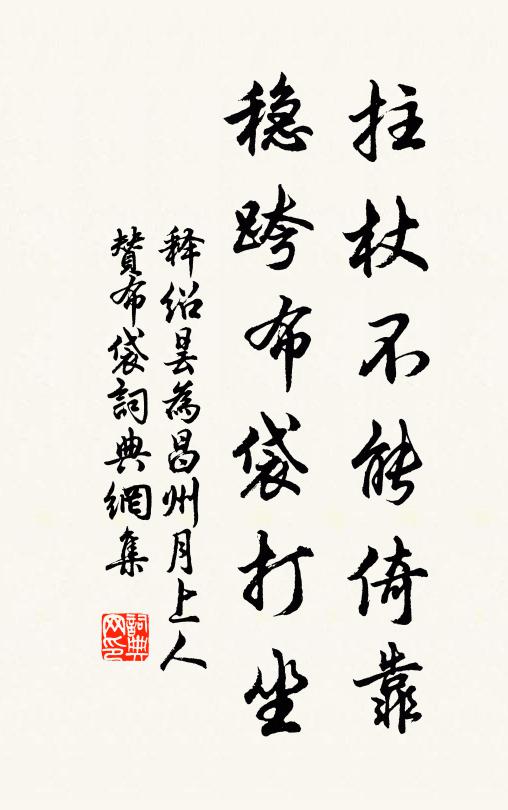 拄杖不能倚靠
稳跨布袋打坐
释绍昙为昌州月上人
赞布袋詞典網集
詞典网印